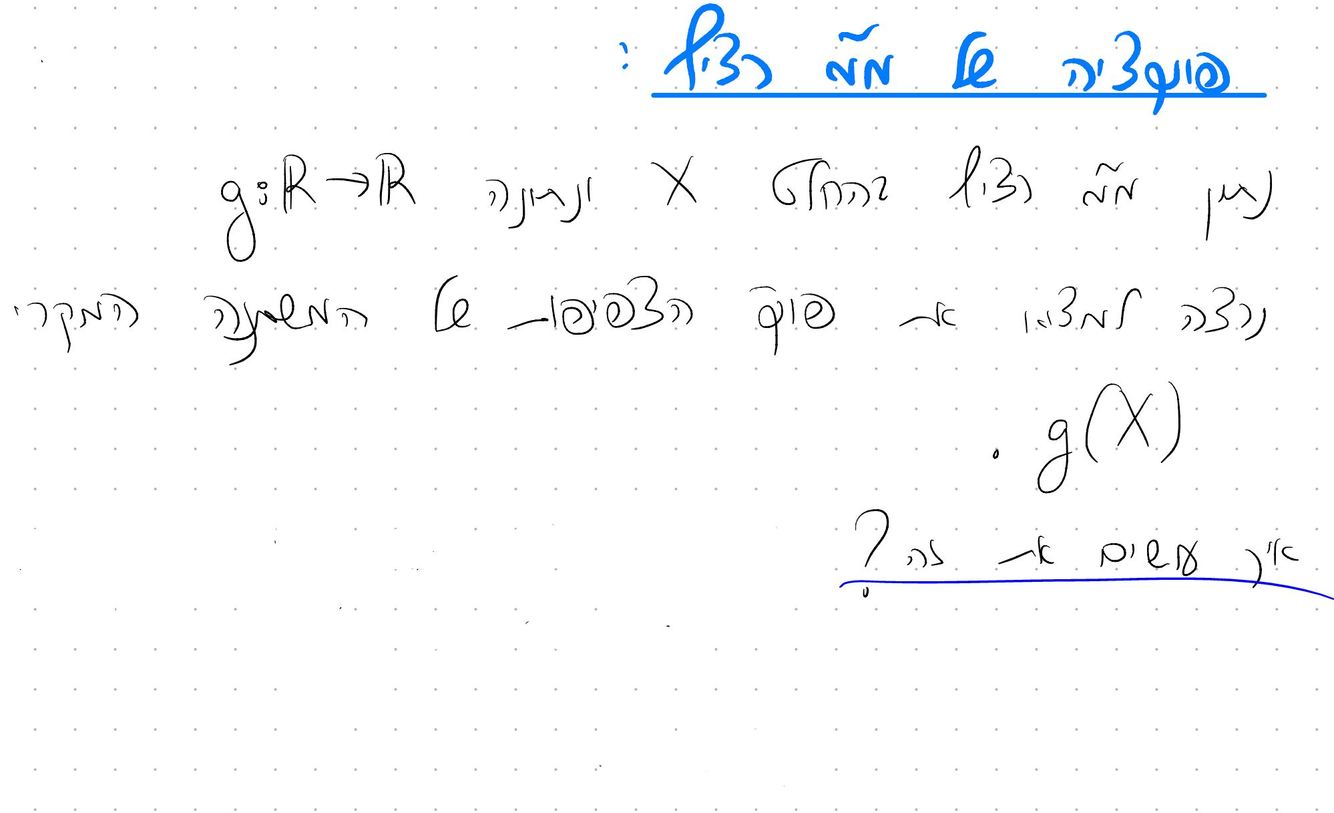 פונקציה של מ"מ רציף:
נתון מ"מ רציף בהחלט X ונתונה g:ℝ→ℝ
נרצה למצוא את פונק' הצפיפות של המשתנה המקרי
g(X).
איך עושים את זה?